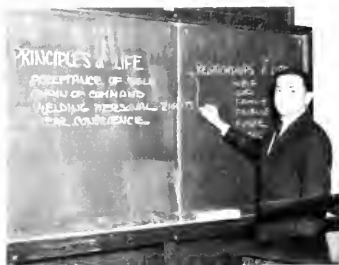 PRINCIPLES of LIFE
ACCEPTANCE OF SELF
CHAIN OF COMMAND
YIELDING PERSONAL RIGHTS
CLEAR CONSCIENCE
RELATIONSHIPS
SELF
GOD
FAMILY
FRIENDS